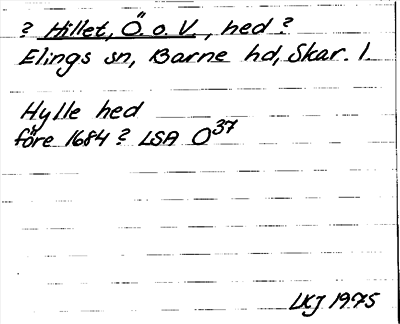 ? Hillet, Ö. o. V., hed ?
Elings sn, Barne hd, Skar. l.
Hylle hed
före 1684 ? LSA O37
LKJ 1975